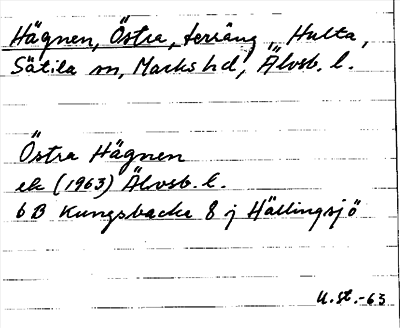 Hägnen, Östra, terräng, Hulta,
Sätila sn, Marks hd, Älvsb. l.
Östra Hägnen
ek (1963) Älvsb. l.
6 B Kungsbacka 8 j Hällingsjö
U.st.-63